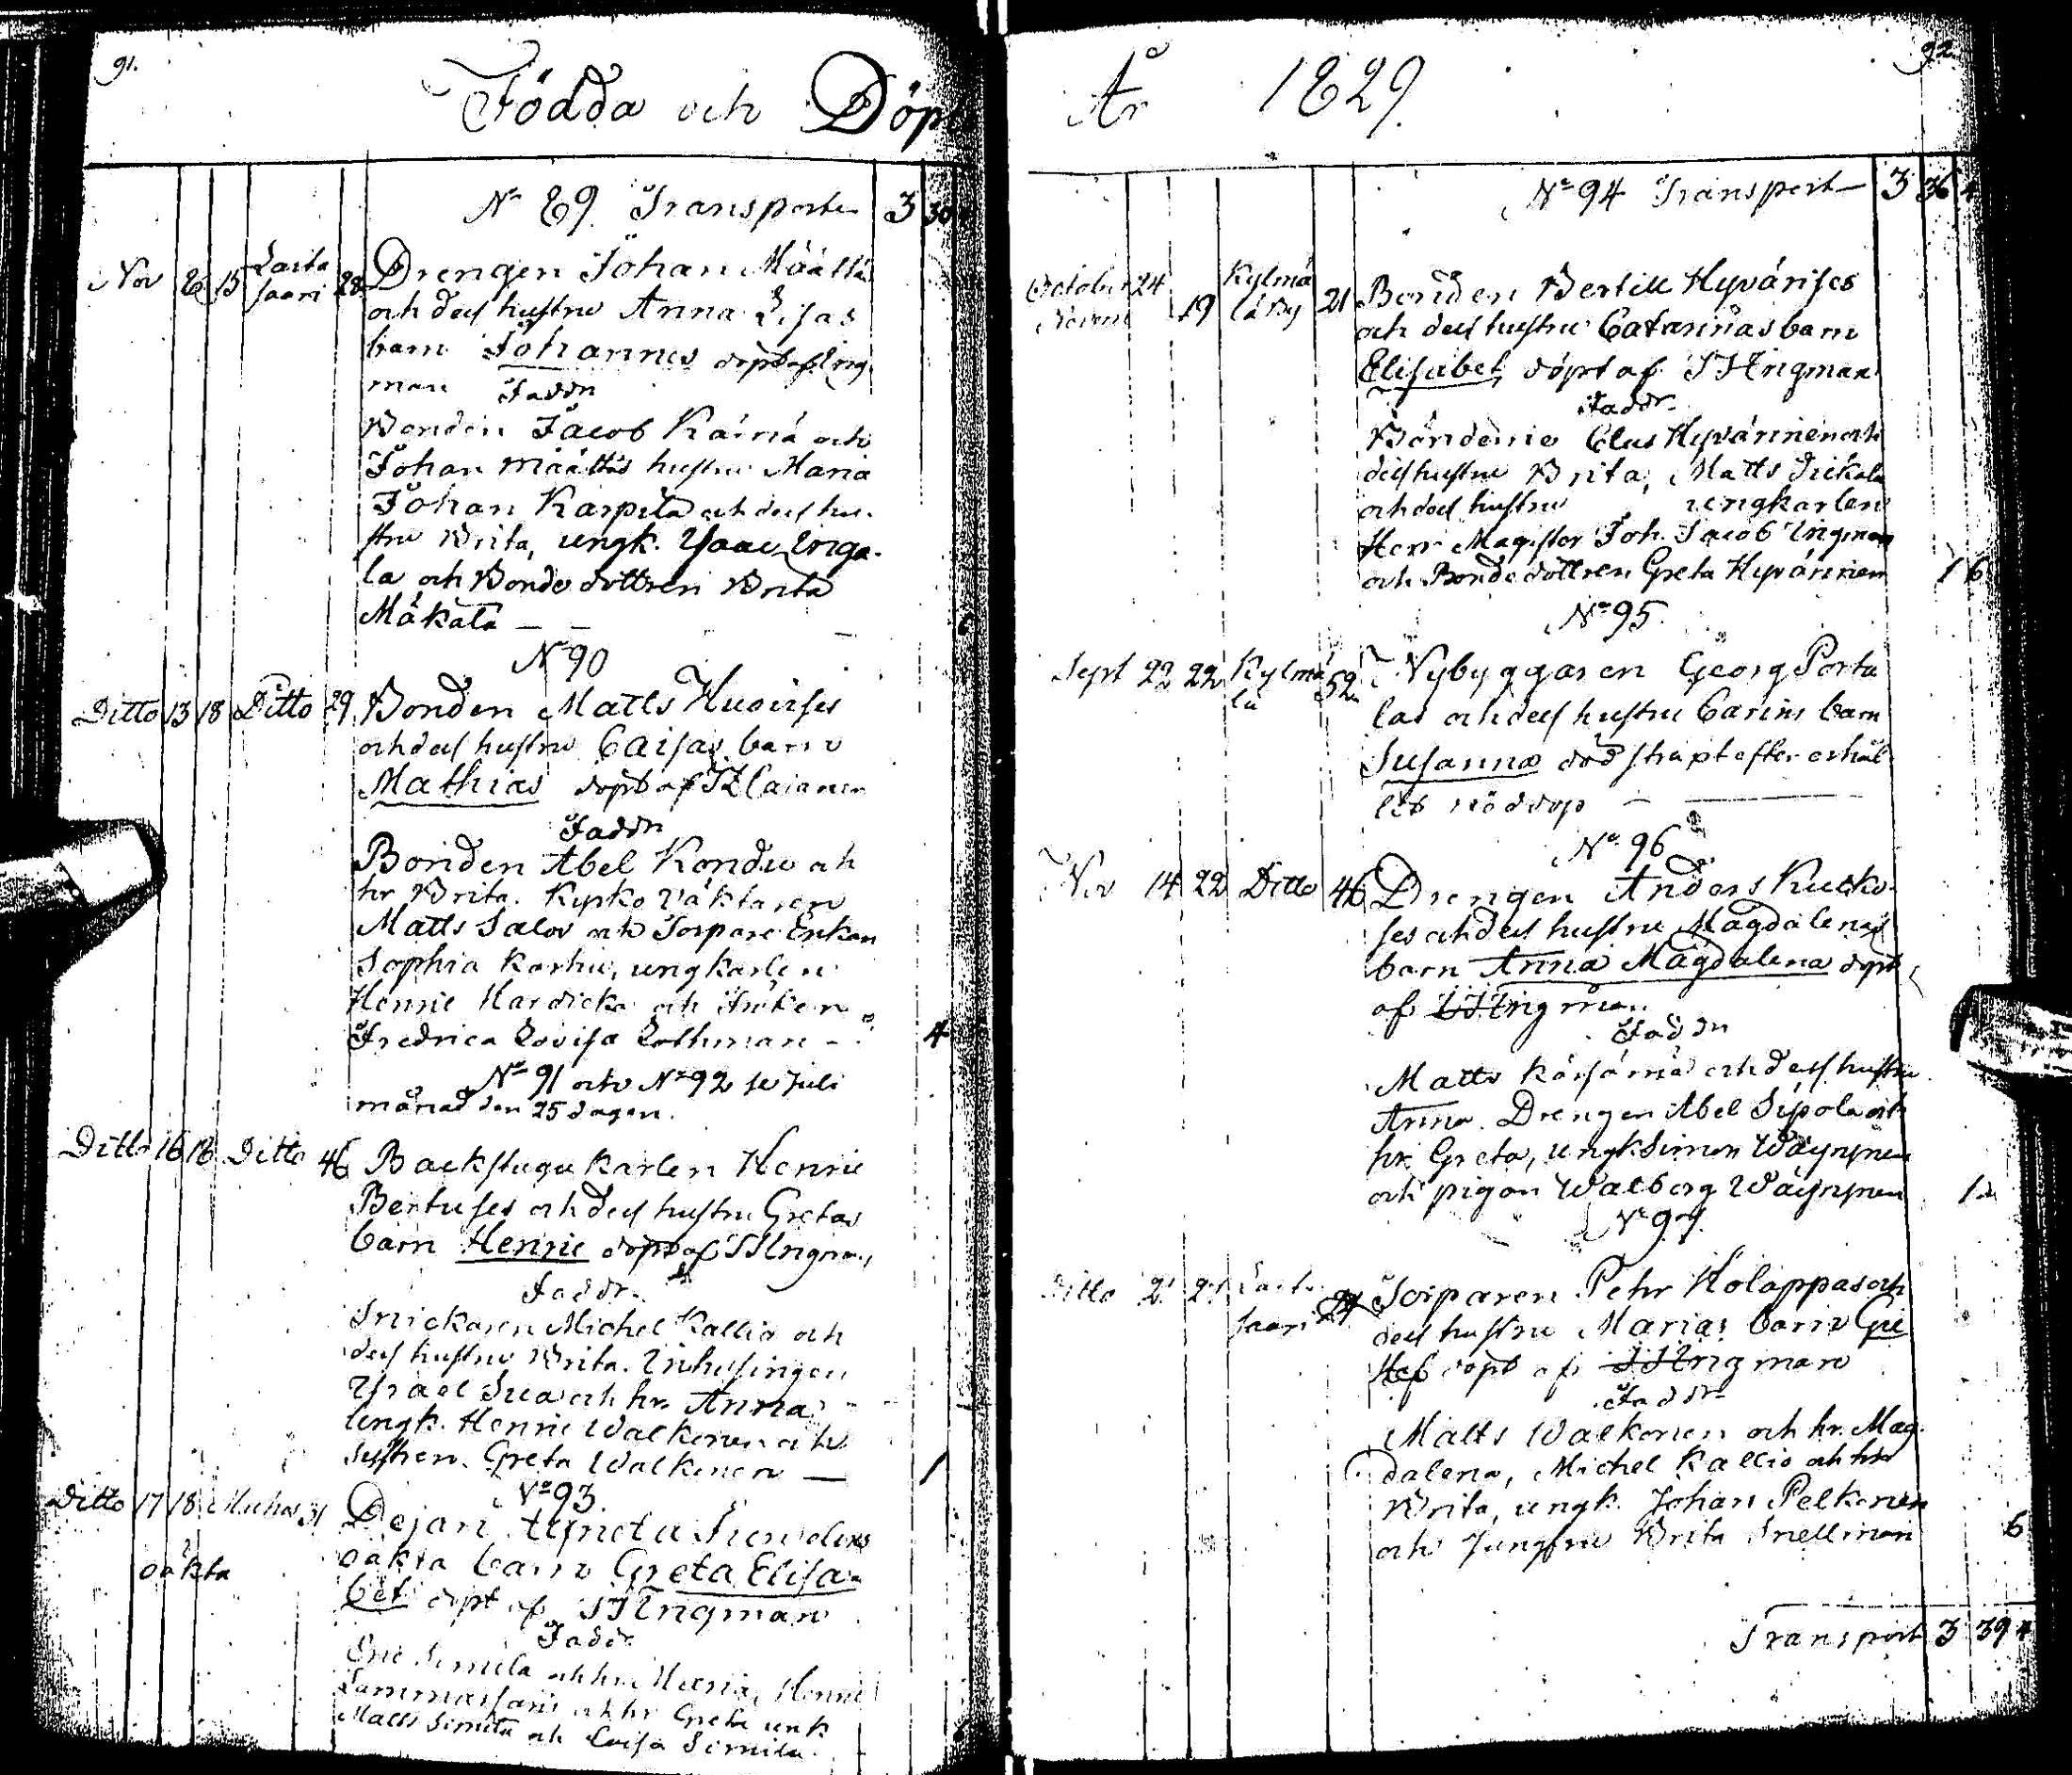 91.
Födda och Döpt
No 89. Transporte 3 30
Nov 8 15 Lasta
saari 28
Drengen Johan Määttäs
och dess hustru Anna Lisas
barn Johannes döpt af Ing-
man
Faddr
Bonden Jacob Kainå och
Johan Määttäs hustru Maria
Johan Karpila och dess hu-
stru Brita, ungk. Ysaac Inga-
la och Bonde dottren Brita
Mäkälä — — 6
No 90
Ditto 13 18 Ditto 29
Bonden Matts Huovises
och dess hustru Caisas barn
Mathias döpt af Cajaner
Faddr
Bonden Abel Kondu och
hr Brita. Kyrko väktaren
Matts Salov och Torpare Enkan
Sophia Karhu, ungkarlen
Henric Hardicka och Fröken
Fredrica Lovisa Lothman — 4
No 91 och No 92 se Juli
månad den 25 dagen.
Ditto 16 18 Ditto 46
Backstugu karlen Henric
Bertuses och dess hustru Gretas
barn Henric döpt af Ingman
Faddr.
Snickaren Michel Kallio och
dess hustru Brita. Inhysingen
Ysrael Sua och hr. Anna
Ungk. Henric Walkonen och
Systren Greta Walkonen — 1
No 93.
Ditto 17 18 Muhos 31
oäkta
Dejan Agneta
oäkta barn Greta Elisa-
bet döpt af Ingman
Faddr
Eric Simila och hr. Maria, Henric
Lammassaari och hr Greta unk
Matts Simila och Caisa Simila.
92
År 1829.
No 94 Transport 3 36 4
October 24
Novem 19 Kylmä
lä By 21
Bonden Bertill Hyvärises
och dess hustru Catarinas barn
Elisabet, döpt af Ingman
Faddr.
Bönderne Clas Hyvärinen och
dess hustru Brita, Matts
och dess hustru ungkarlen
Herr Magister Joh. Jacob Ingman
och Bonde dottren Greta Hyvärinen 1 6
No 95.
Sept 22 22 Kylmä
lä 52
Nybyggaren Georg Porta
las och dess hustru Carins barn
Susanna död strax efter erhål-
lit nöddop —
No 96
Nov 14 22 Ditto 46
Drengen Anders Kucko-
ses och dess hustru Magdalenas
barn Anna Magdalena döpt
af Ingman.
Faddr
Matts Kärsämä och dess hustru
Anna. Drengen Abel Sipola och
hr. Greta, ungk Simon Wäyrynen
och pigan Walborg Wäyrynen 12
No 97.
Ditto 21 Lasta
saari
Torparen Pehr Kolappas och
dess hustru Marias barn Gu
staf döpt af Ingman
Faddr
Matts Walkonen och hr. Mag-
dalena, Michel Kallio och hr
Brita, ungk. Johan Pelkonen
och Jungfru Brita Snellman 6
Transport 3 39 4